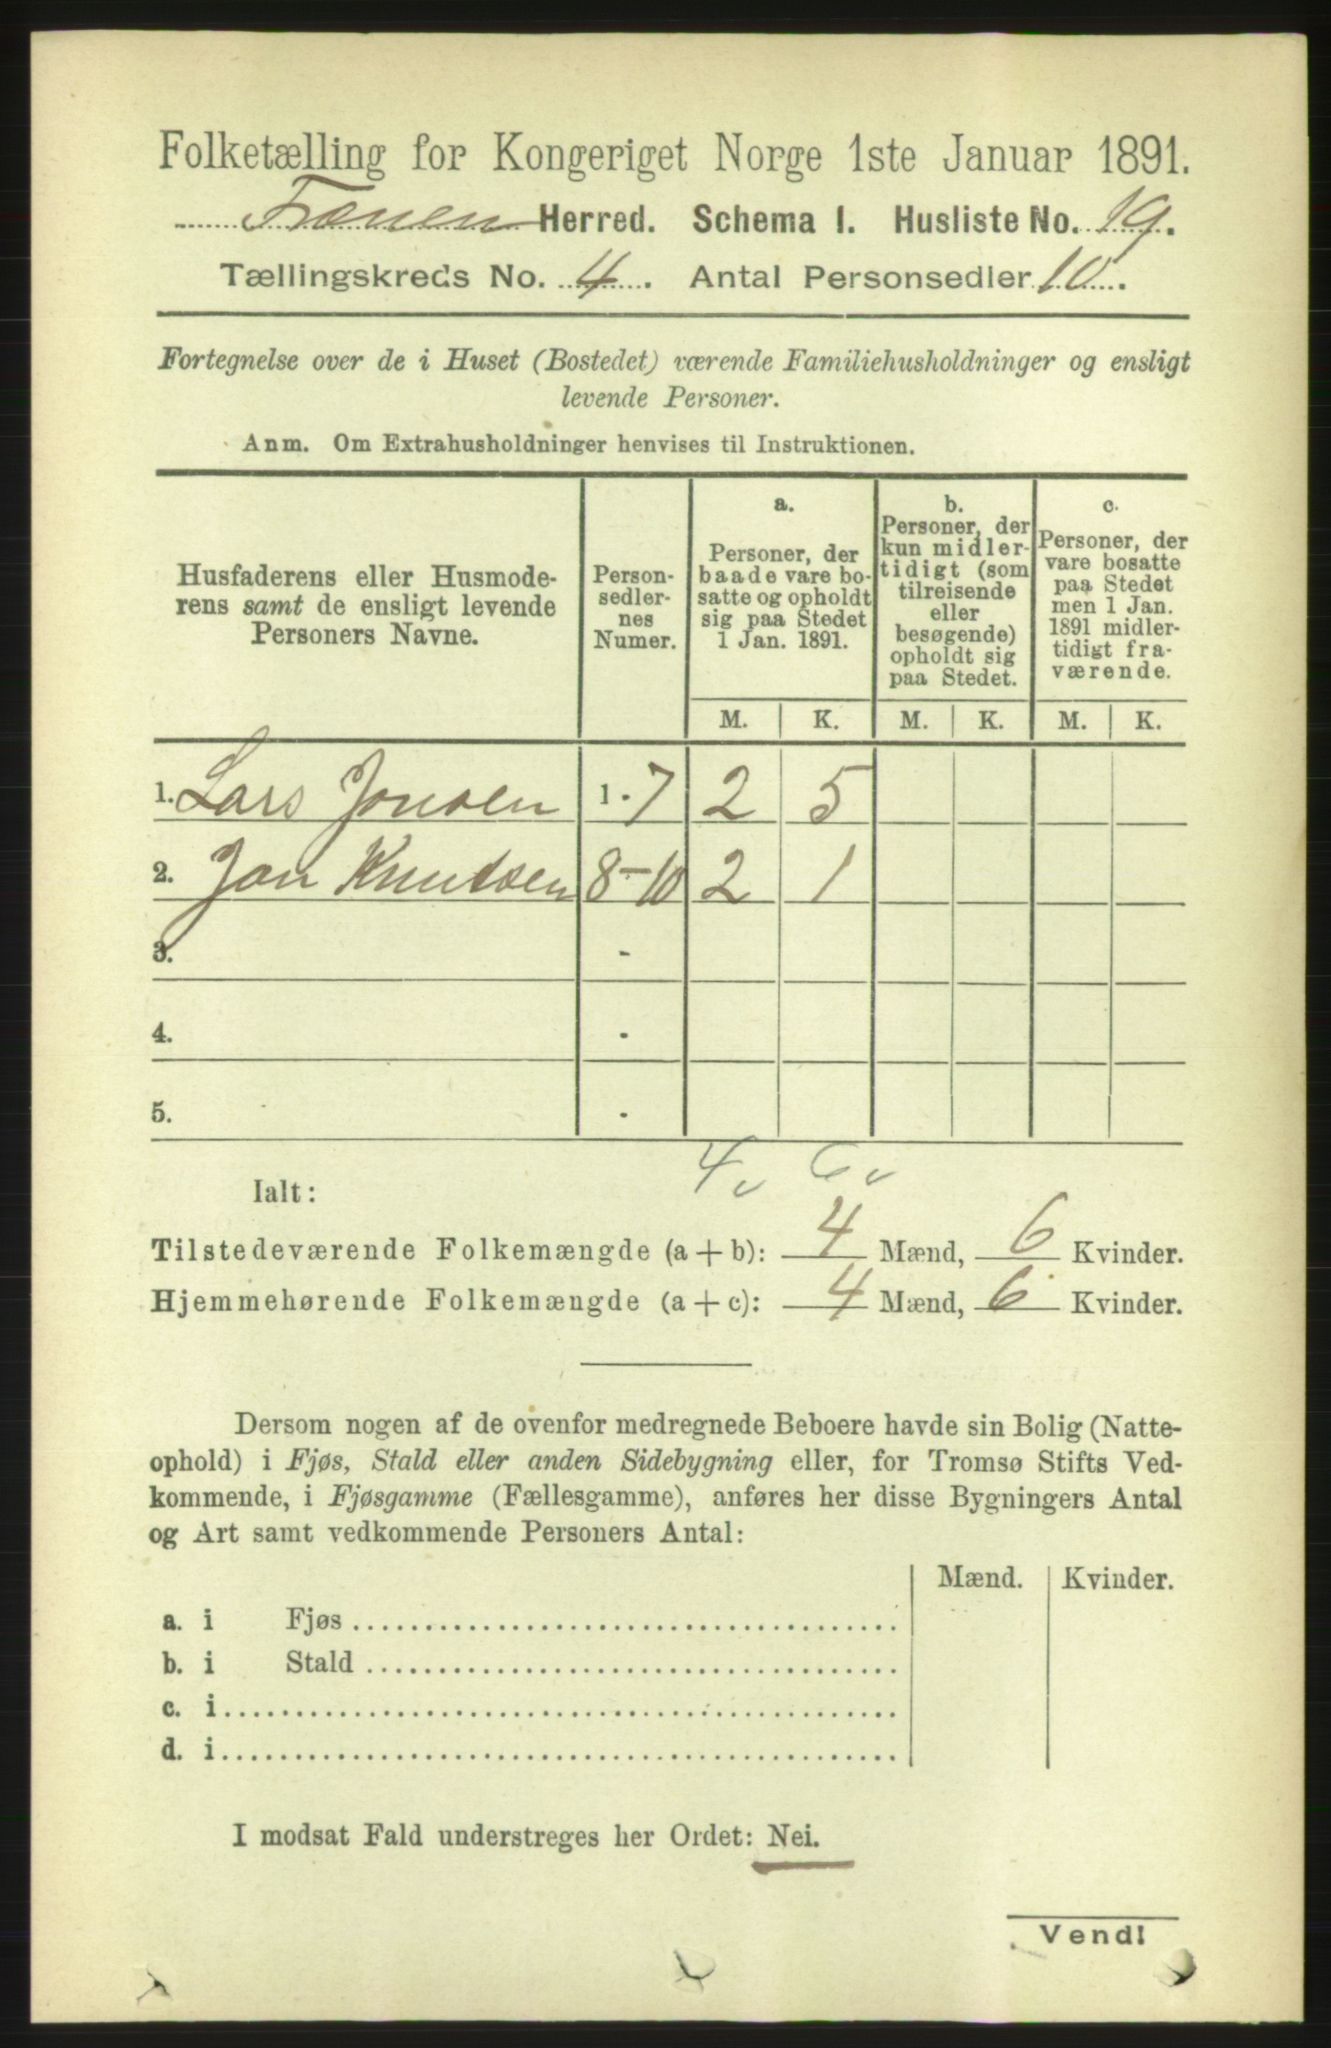 Folketælling for Kongeriget Norge 1ste Januar 1891.
Frænen Herred. Schema I. Husliste No. 19.
Tællingskreds No. 4. Antal Personsedler 10.
Fortegnelse over de i Huset (Bostedet) værende Familiehusholdninger og ensligt
levende Personer.
Anm. Om Extrahusholdninger henvises til Instruktionen.
Husfaderens eller Husmode-
rens samt de ensligt levende
Personers Navne.
Person-
sedler-
nes
Numer.
a.
Personer, der
baade vare bo-
satte og opholdt
sig paa Stedet
1 Jan. 1891.
b.
Personer, der
kun midler-
tidigt (som
tilreisende
eller
besøgende)
opholdt sig
paa Stedet.
c.
Personer, der
vare bosatte
paa Stedet
men 1 Jan.
1891 midler-
tidigt fra-
værende.
M. K. M. K. M. K.
1. Lars Jonsen 1-7 2 5
2. Jon Knudsen 8-10 2 1
3. -
4. -
5. -
4 6
Ialt:
Tilstedeværende Folkemængde (a + b): 4 Mænd, 6 Kvinder.
Hjemmehørende Folkemængde (a + c): 4 Mænd, 6 Kvinder.
Dersom nogen af de ovenfor medregnede Beboere havde sin Bolig (Natte-
ophold) i Fjøs, Stald eller anden Sidebygning eller, for Tromsø Stifts Ved-
kommende, i Fjøsgamme (Fællesgamme), anføres her disse Bygningers Antal
og Art samt vedkommende Personers Antal:
Mænd. Kvinder.
a. i Fjøs
b. i Stald
c. i
d. i
I modsat Fald understreges her Ordet: Nei.
Vend!